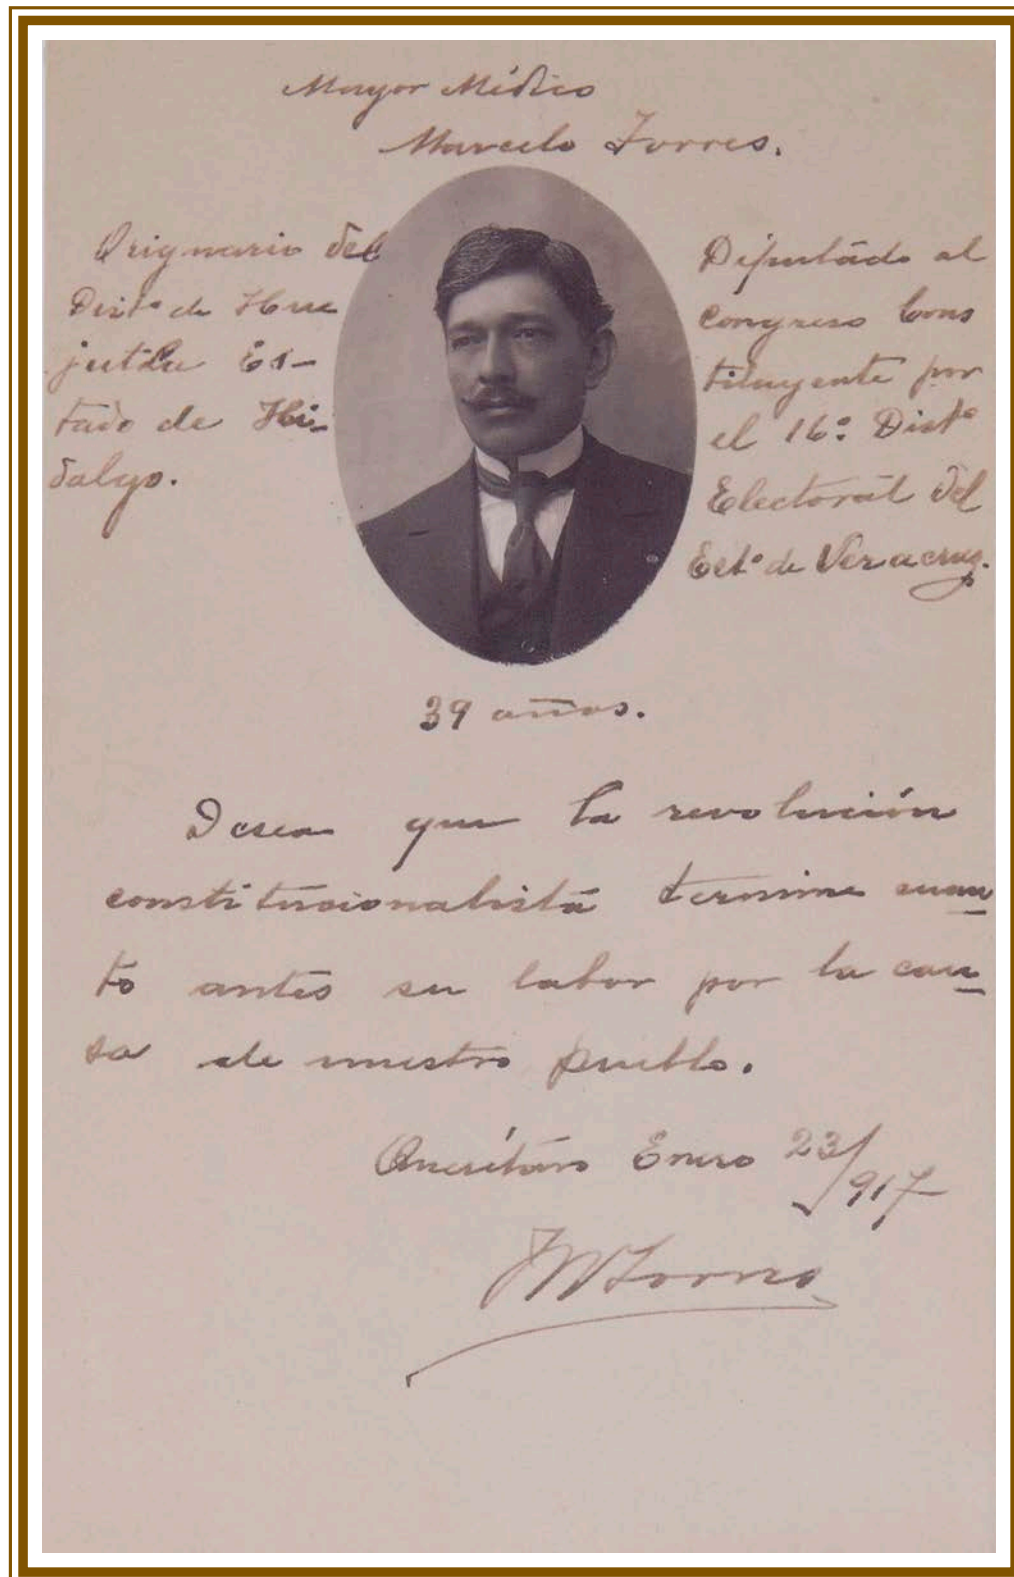 Mayor Médico
Marcelo Torres.
Orignario del
Dist.º de Hue
jutla Es-
tado de Hi-
dalgo.
Diputádo al
congreso Cons
tituyente por
el 16º Dist.º
Electorál del
Est.º de Veracruz.
39 años.
Desea que la revolución
constitucionalista termine cuan
to antes su labor por la cau
sa de nuestro pueblo.
Querétaro Enero 23/917
Torres